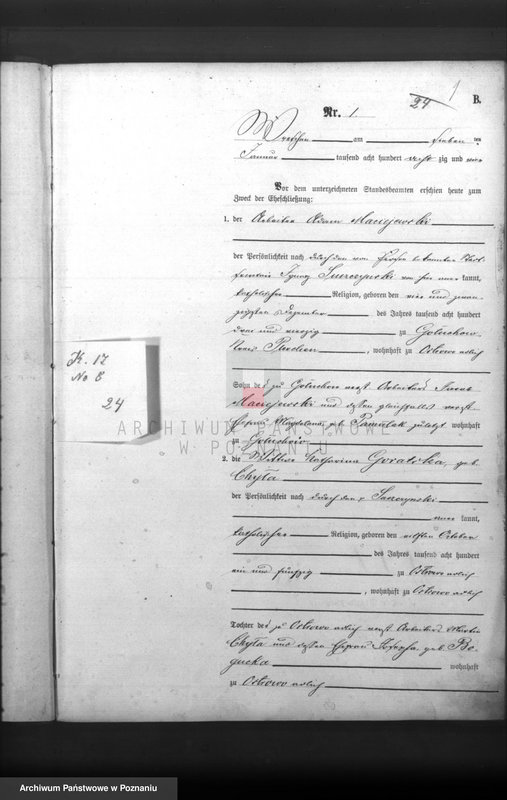 1
24
B.
Nr. 1
Wreschen am sieben ten
Januar tausend acht hundert acht zig und vier
Vor dem unterzeichneten Standesbeamten erschien heute zum
Zweck der Eheschließung:
1. der Arbeiter Adam Maciejewski
der Persönlichkeit nach durch den von Person bekannten
Ignaz kannt,
katholischer Religion, geboren den vier und zwan-
zigsten Dezember des Jahres tausend acht hundert
drei und vierzig zu Goluchow
Kreis Pleschen, wohnhaft zu Ostrowo adlich
Sohn des zu Goluchow verst. Arbeiters
Maciejewski und dessen gleichfalls verst.
Ehefrau Magdalena geb. zuletzt wohnhaft
zu Goluchow
2. die Wittwe Katharina Goralska, geb.
Chyta
der Persönlichkeit nach durch den p.
kannt,
katholischer Religion, geboren den elften October
des Jahres tausend acht hundert
ein und fünfzig zu Ostrowo adlich
, wohnhaft zu Ostrowo adlich
Tochter des zu Ostrowo adlich verst. Arbeiters Martin
Chyta und dessen Ehefrau Josepha, geb. Bo-
gucka wohnhaft
zu Ostrowo adlich
K. 17
No 8
24
ARCHIWUM PAŃSTWOWE
W POZNANIU
Archiwum Państwowe w Poznaniu